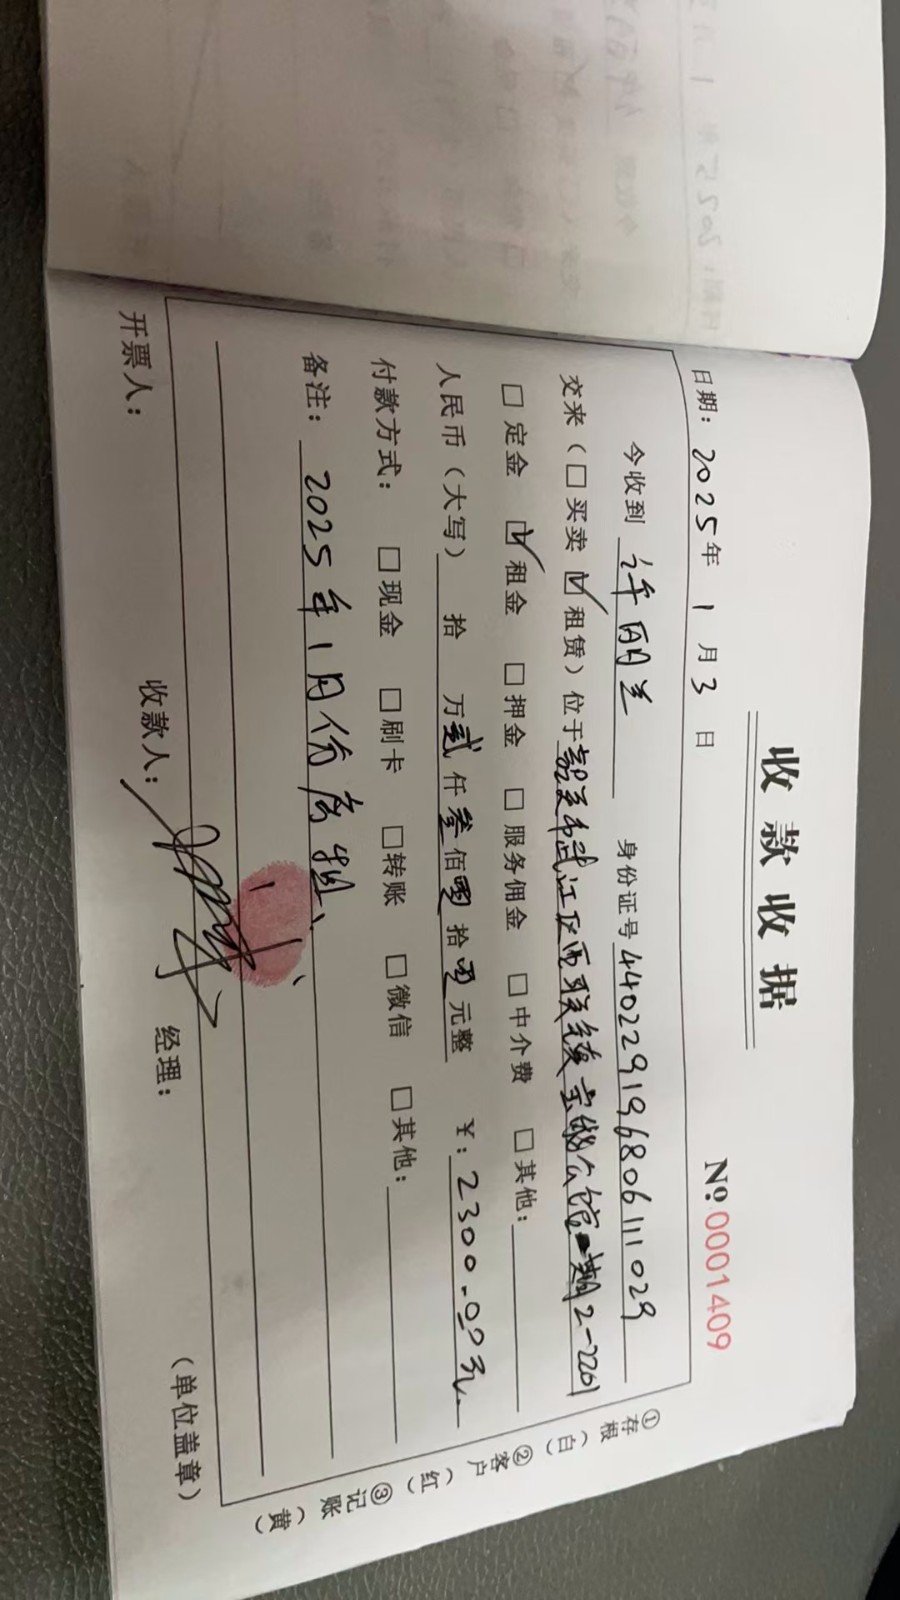 收款收据
№ 0001409
日期：2025年 1 月 3 日
今收到 许丽兰 身份证号 440229196806111029
交来（□买卖 ☑租赁）位于韶关市武江区西联镇宝能公馆二期2-2201
□定金 ☑租金 □押金 □服务佣金 □中介费 □其他：
人民币（大写） 拾 万贰仟叁佰零拾零元整 ￥：2300.00元
付款方式： □现金 □刷卡 □转账 □微信 □其他：
备注：2025年1月份房租
开票人： 收款人： 经理： （单位盖章）
①存根（白）②客户（红）③记账（黄）